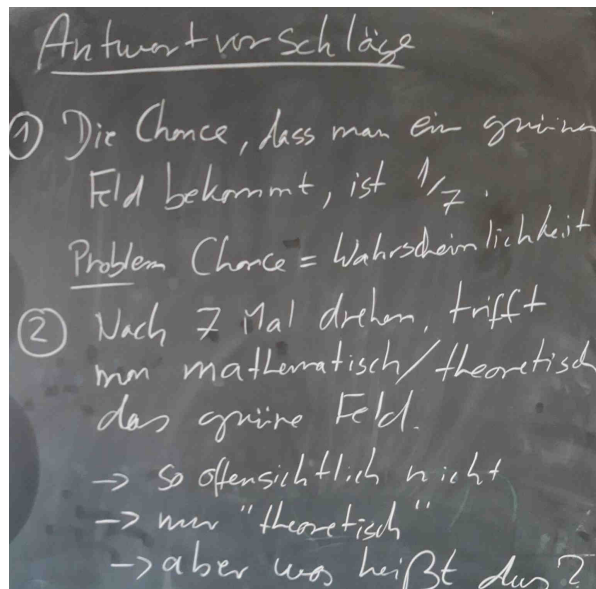 Antwortvorschläge
① Die Chance, dass man ein grünes
Feld bekommt, ist 1/7.
Problem Chance = Wahrscheinlichkeit
② Nach 7 Mal drehen, trifft
man mathematisch/theoretisch
das grüne Feld.
→ so offensichtlich nicht
→ nur "theoretisch"
→ aber was heißt das?